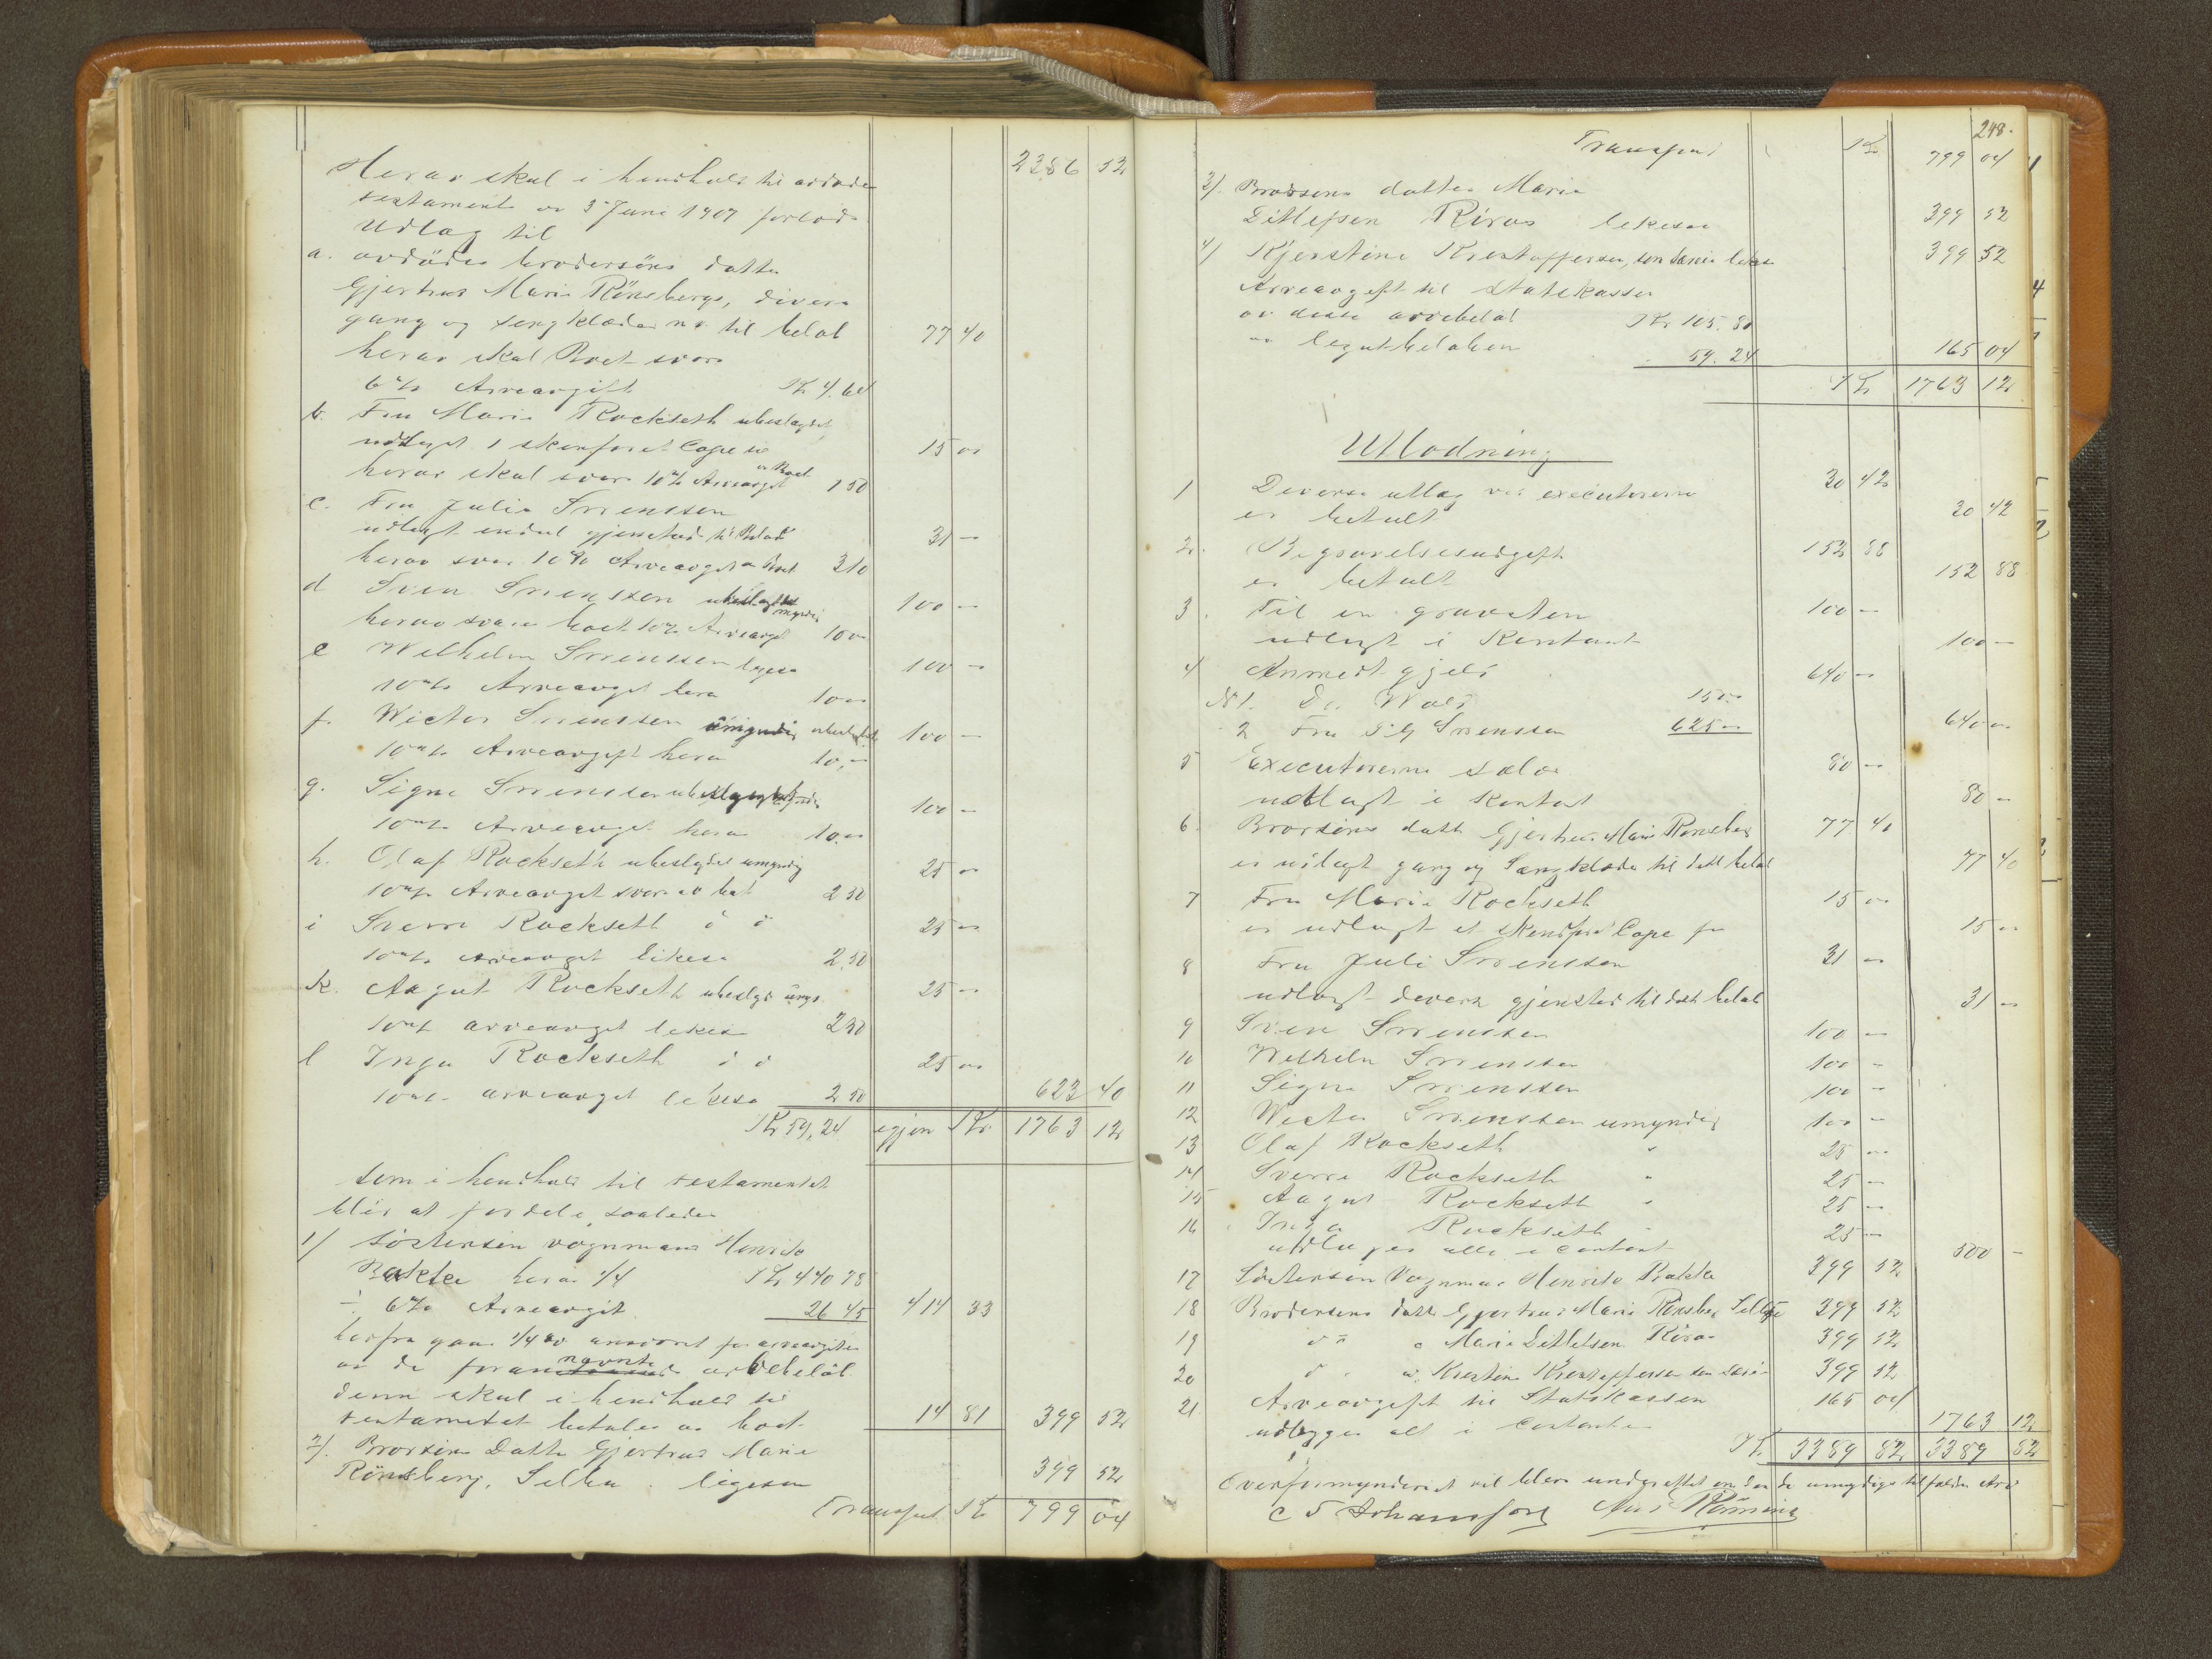 2386 52
Herav skal i henhold til avdødes
testamente av 3 Juni 1909 forlods
Udlag til
a. avdødes brodersöns datter
Gjertrud Marie Rönsberg, diverse
gang og sengklæder m.v. til beløb 77 40
herav skal Boet svare
6 % Arveavgift Kr 4.64
b. Fru Marie Rockseth ubeslegtet
udlagt 1 skinforet Cape 15 00
herav skal svare 10 % Arveavgft av Boet 1 50
c. Fru Julie Sørenssen
udlagt endel gjenstand til Beløb 31 -
herav svar 10 % Arveavgt av Boet 3 10
d Sven Sørenssen ubeslegtet myndig 100 -
herav svarer boet 10 % Arveavgt 10 00
e Wilhelm Sørenssen ligesaa 100 -
10 % Arveavgt hera 10 00
f. Wictor Sørenssen umyndig ubeslegtet 100 -
10 % Arveavgift hera 10,-
g. Signe Sørenssen ubeslegtet 100 -
10 % Arveavgt hera 10.00
h. Olaf Rockseth ubeslegtet umyndig 25 00
10 % Arveavget svares av boet 2 50
i Sverre Rockseth " " 25 00
10 % arveavget likesaa 2,50
k. Aagot Rockseth ubeslgt umyn. 25 -
10 % arveavget likesaa 2 50
l Inga Rockseth " " 25 00
10 % arveavget likesaa 2 50 623 40
Kr 59,24 igjen Kr 1763 12
som i henhold til testamentet
blir at fordele saaledes
1/ Söstersön vognmand Henrik
Bakke herav 1/4 Kr 440 78
÷ 6 % Arveavgift 26 45 414 33
herfra gaar 1/4 av ansvaret for arveavgiften
av de forannævnte arvebeløb
denne skal i henhold til
testamentet betales av boet 14 81 399 52
2/. Brorsöns Datter Gjertrud Marie
Rönsberg, Selbu ligesaa 399 52
Transport Kr 799 04
248.
Transport Kr 799 04
3/. Brorsøns datter Marie
Ditlefsen Röros likesaa 399 52
4/ Kjerstine Kristoffersen, likesaa 399 52
Arveavgift til Statskassen
av disse arvebeløb Kr 105.80
av legatbeløben 59.24 165 04
Kr 1763 12
Utlodning
1 Diverse utlæg ved executorerne 20 42
er betalt 20 42
2. Begravelsesudgift 152 88
er betalt 152 88
3. Til en gravsten 100 -
udlagt i Kontant 100 -
4 Anmeldt gjeld 640 -
N 1. Dr. Wold 15.00
- 2 Fru Sørenssen 625 00 640 00
5 Executorerne salær 80 -
udlagt i Kontant 80 -
6. Brorsöns datt Gjertrud Marie Rönsberg 77 40
er udlagt gang og Sængklæder til dett beløb 77 40
7 Fru Marie Rockseth 15 00
er udlagt et skindforet Cape for 15 00
8 Fru Juli Sørenssen 31 00
udlagt diverse gjenstand til dett beløb 31 -
9 Sven Sørenssen 100 -
10 Wilhelm Sørenssen 100 -
11 Signe Sørenssen 100 -
12 Wictor Sørenssen umyndig 100 -
13 Olaf Rockseth " 25 00
14 Sverre Rockseth " 25 -
15 Aagot Rockseth " 25 -
16 Inga Rockseth " 25 -
udlagges alle i contant 500 -
17 Söstersön Vognman Henrik Bakke 399 52
18 Brodersöns datt Gjertrud Marie Rönsberg Selbu 399 52
19 " " Marie Detlefsen Röros 399 52
20 " " Kristine Kristoffersen 399 52
21 Arveavgift til Statskassen 165 04
udlægges alt i Contanter 1763 12
Kr 3389 82 3389 82
Overformynderiet vil blive underrettet om den de umyndige tilfaldne Arv
C T Johansson